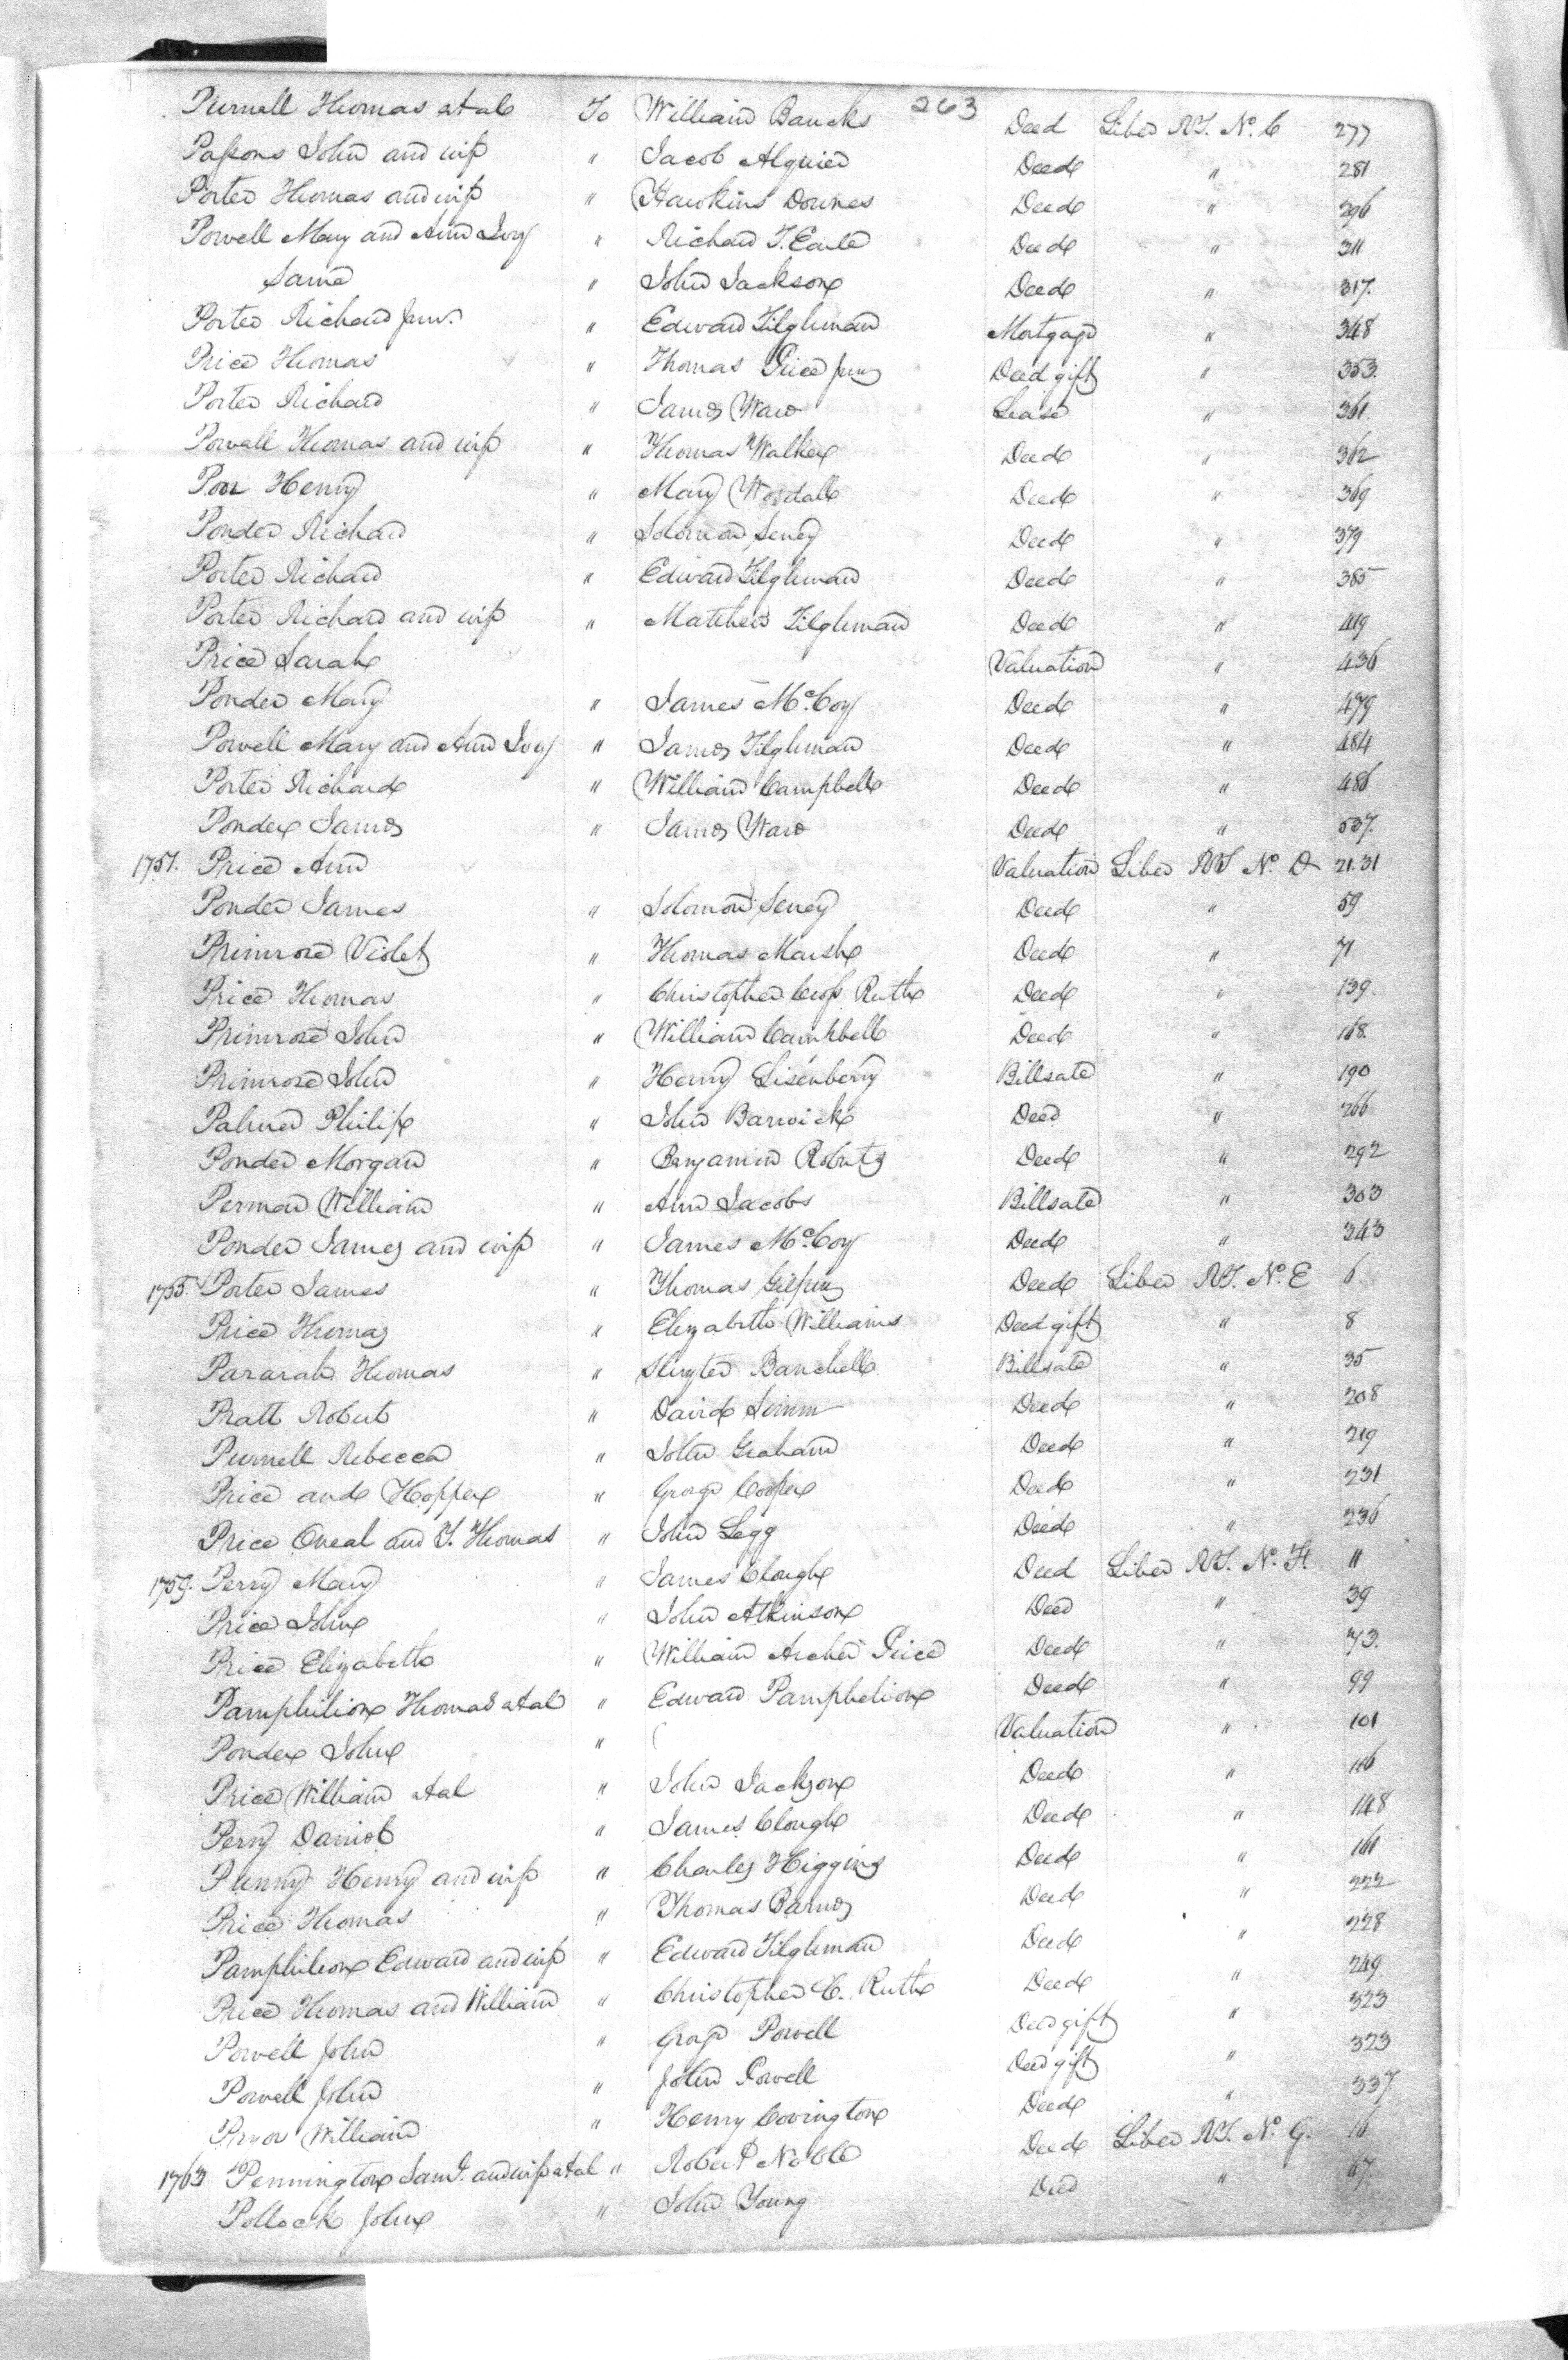 263
Purnell Thomas et al To William Bancks Deed Liber RT. No. C 277
Passons John and wife " Jacob Alquier Deed " 281
Porter Thomas and wife " Hawkins Downes Deed " 296
Powell Mary and Ann Ivey " Richard T. Earle Deed " 311
Same " John Jackson Deed " 317.
Porter Richard Junr. " Edward Tilghman Mortgage " 348
Price Thomas " Thomas Price Junr Deed gift " 353.
Porter Richard " James Ware Lease " 361
Powall Thomas and wife " Thomas Walker Deed " 362
Poor Henry " Mary Wordall Deed " 369
Ponder Richard " Solomon Seney Deed " 379
Porter Richard " Edward Tilghman Deed " 385
Porter Richard and wife " Matthew Tilghman Deed " 419
Price Sarah Valuation " 436
Ponder Mary " James McCoy Deed " 479
Powell Mary and Ann Ivey " James Tilghman Deed " 484
Porter Richard " William Campbell Deed " 486
Ponder James " James Ware Deed " 537.
1751. Price Ann Valuation Liber RT No. D 21.31
Ponder James " Solomon Seney Deed " 59
Primrose Violet " Thomas Marsh Deed " 71
Price Thomas " Christopher Cross Ruth Deed " 139.
Primrose John " William Campbell Deed " 168.
Primrose John " Henry Eisenberry Billsale " 190
Palmer Philip " John Barwick Deed " 266
Ponder Morgan " Benjamin Roberts Deed " 292
Permar William " Ann Jacobs Billsale " 303
Ponder James and wife " James McCoy Deed " 343
1755. Porter James " Thomas Gilpin Deed Liber RT. No. E 6.
Price Thomas " Elizabeth Williams Deed gift " 8
Pararah Thomas " Banchell Billsale " 35
Pratt Robert " David Simm Deed " 208
Purnell Rebecca " John Graham Deed " 219
Price and Hopper " George Cooper Deed " 231
Price Oneal and T. Thomas " John Legg Deed " 236
1759. Perry Mary " James Clough Deed Liber RT. No. F. 11
Price John " John Atkinson Deed " 39
Price Elizabeth " William Archer Price Deed " 73.
Pamphilion Thomas et al " Edward Pamphelion Deed " 99
Ponder John " Valuation " 101
Price William et al " John Jackson Deed " 116
Perry Daniel " James Clough Deed " 148
Punny Henry and wife " Charles Higgins Deed " 161
Price Thomas " Thomas Barnes Deed " 222
Pamphilion Edward and wife " Edward Tilghman Deed " 228
Price Thomas and William " Christopher C. Ruth Deed " 249
Powell John " George Powell Deed gift " 323
Powell John " John Powell Deed gift " 323
Pryor William " Henry Covington Deed " 337
1763 Pennington Saml. and wife et al " Robert Noble Deed Liber RT. No. G. 16
Pollock John " John Young Deed " 67.